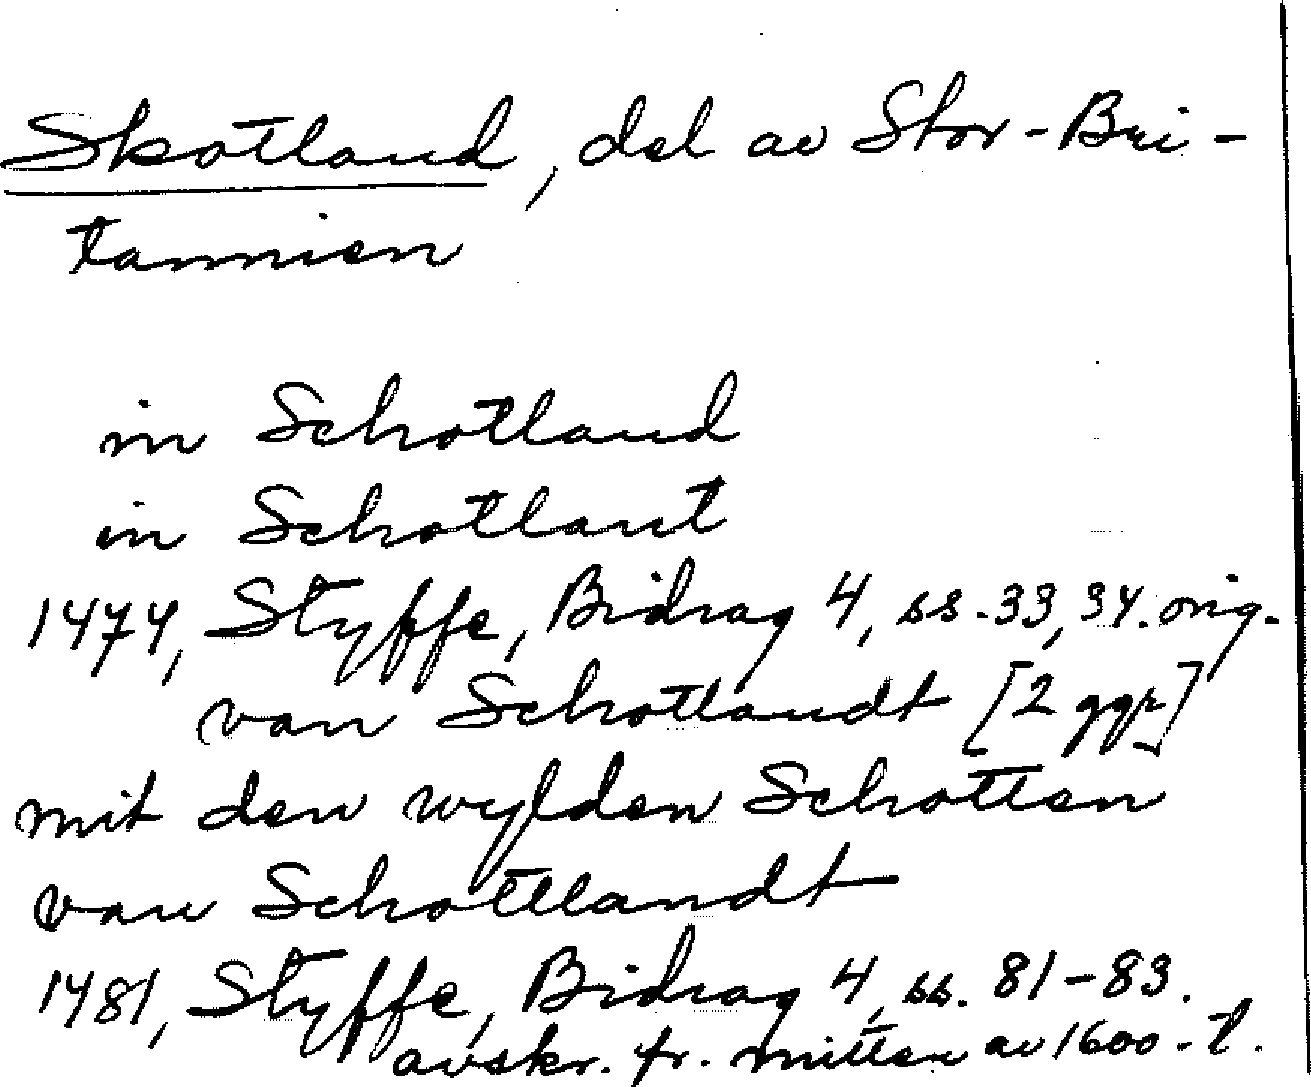 Skotland, del av Stor-Bri-
tannien
in Schotland
in Schotlant
1474, Styffe, Bidrag 4, ss. 33, 34. orig.
van Schottlandt [2 ggr]
mit den wylden Schotten
van Schottlandt
1481, Styffe, Bidrag 4, ss. 81-83.
avskr. fr. mitten av 1600-t.